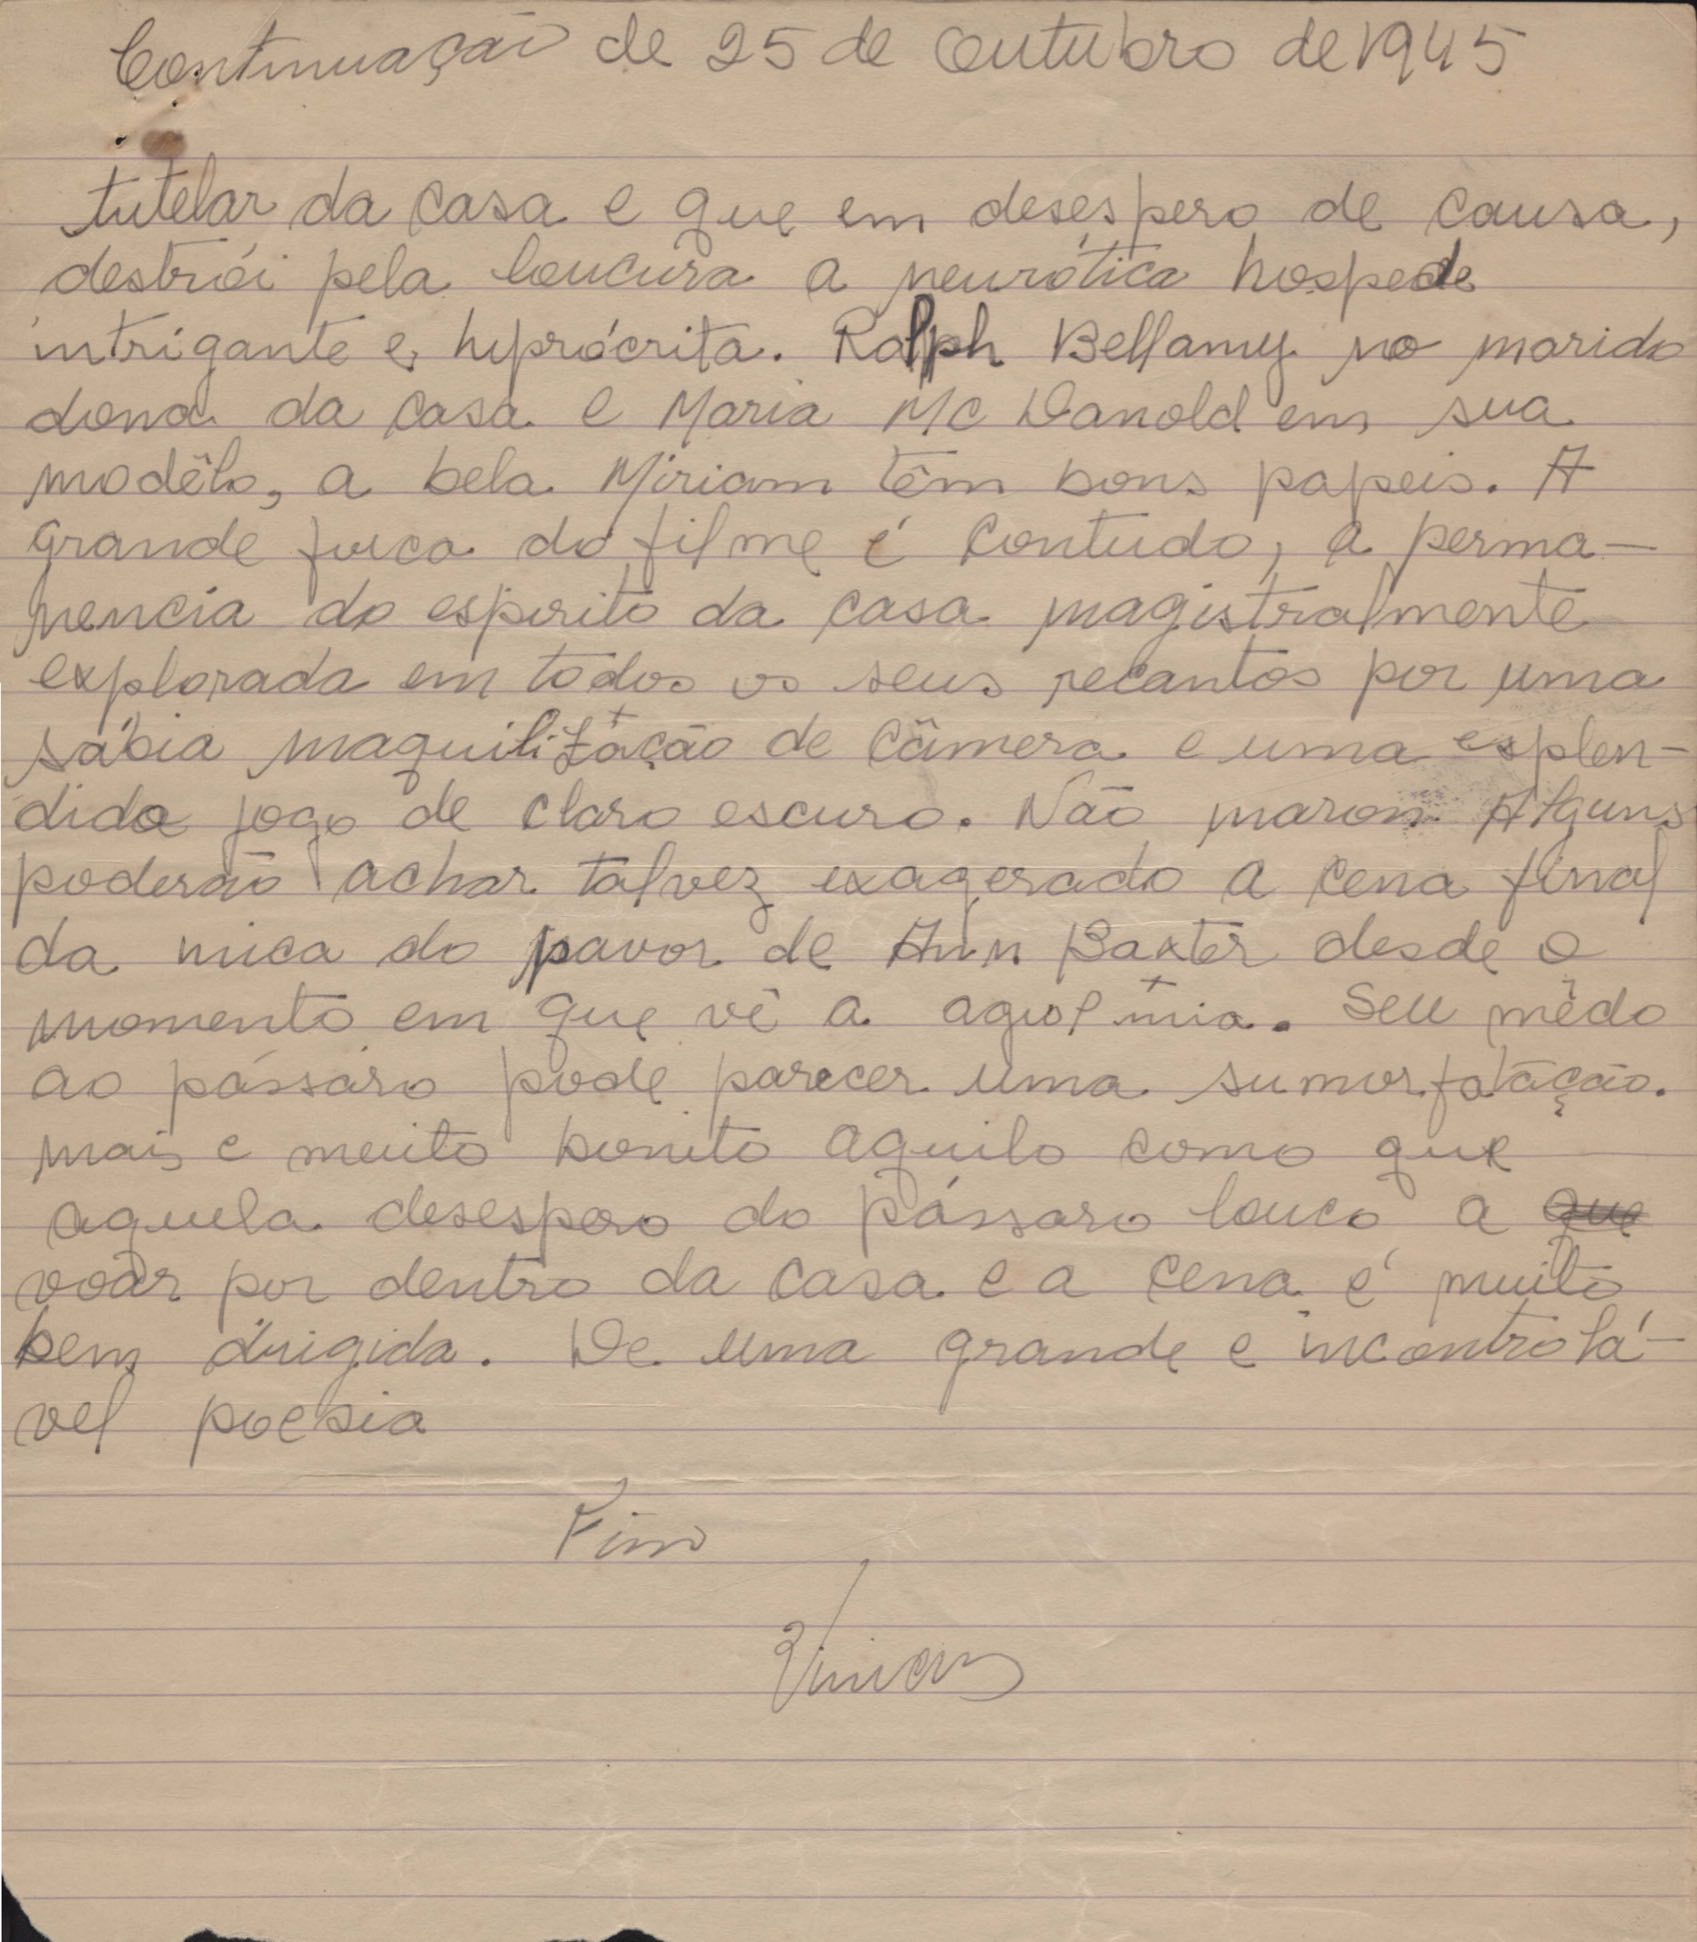 Continuação de 25 de outubro de 1945
tutelar da casa e que em desespero de causa,
destrói pela loucura a neurótica hospede
intrigante e, hyprócrita. Ralph Bellamy no marido
dona da casa e Maria Mc Danold em sua
modêlo, a bela Miriam têm bons papeis. A
grande fuca do filme é contudo, a perma-
nencia do espirito da casa magistralmente
explorada em todos os seus recantos por uma
sábia maquilitação de câmera e uma esplen-
dida jogo de claro escuro. Não maron Alguns
poderão achar talvez exagerado a cena final
da muca do pavor de Ann Baxter desde o
momento em que vê a mia. Seu mêdo
ao pássaro pode parecer uma
mais e muito bonito aquilo como que
aquela desespero do pássaro louco a que
voar por dentro da casa e a cena é muito
bem dirigida. De uma grande e incontrolá-
vel poesia
Fim
Vinicius